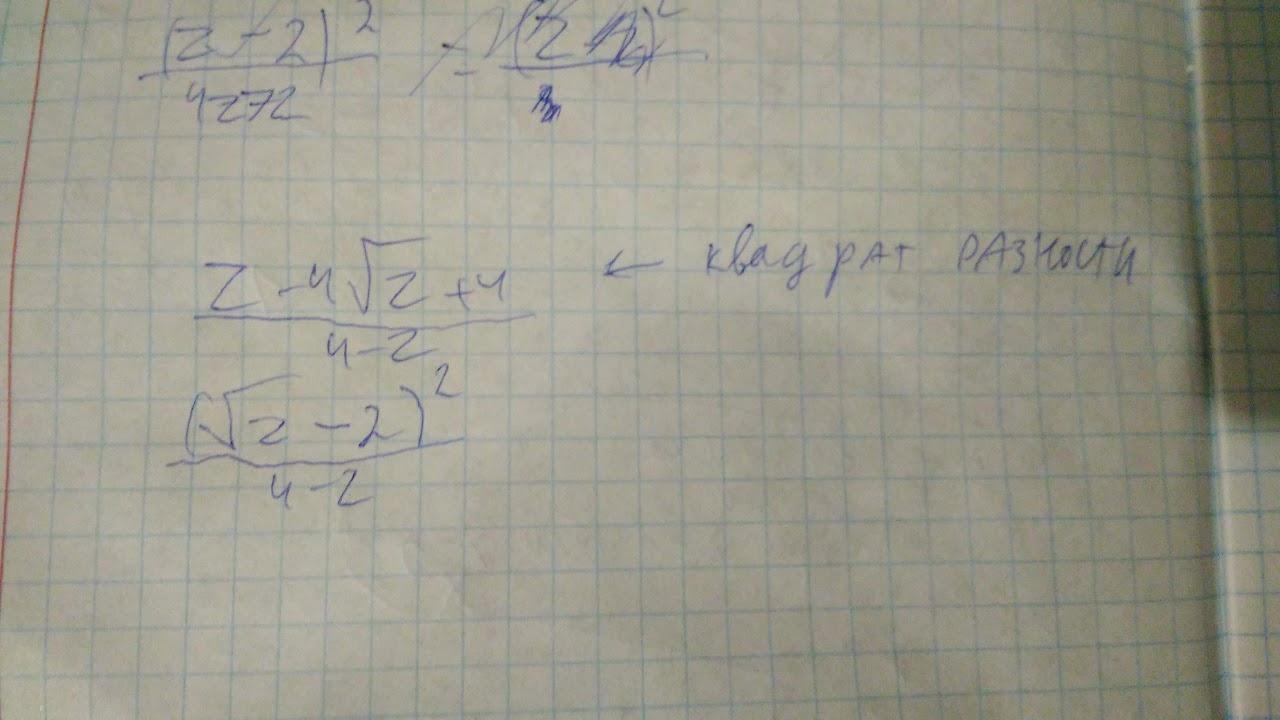 (z-2)²
4z72
z-4√z+4 ← квадрат разности
4-z
(√z-2)²
4-2